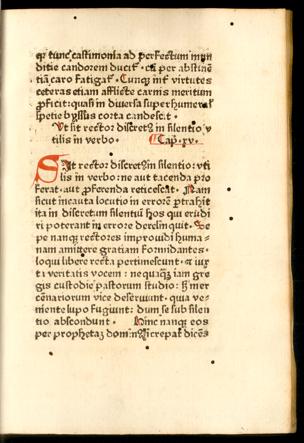 q̄ tunc castimonia ad perfectum mun
ditie candorem ducit᷑ · cū per abstinē
tiā caro fatigat᷑ · Cunq̄ int᷑ virtutes
ceteras etiam afflicte carnis meritum
ꝓficit: quasi in diuersa superhumeral᷑
spetie byssus torta candescit ·
Vt sit rector discret᷒ in silentio v
tilis in verbo · Cap̄ · xv ·
Sit rector discret᷒ in silentio: vti
lis in verbo: ne aut tacenda pro
ferat · aut ꝓferenda reticescat · Nam
sicut incauta locutio in errorē ꝑtrahit
ita indiscretum silentiū hos qui erudi
ri poterant in errore derelinquit · Se
pe nanq̄ rectores improuidi huma-
nam amittere gratiam formidantes ·
loqui libere recta pertimescunt · ⁊ iux
ta veritatis vocem : nequaq̄ iam gre
gis custodie pastorum studio: s̄ mer
cēnariorum vice deseruiunt · quia ve-
niente lupo fugiunt: dum se sub silen
tio abscondunt · Hinc nanq̄ eos
per prophetā domin᷒ increpat dicēs